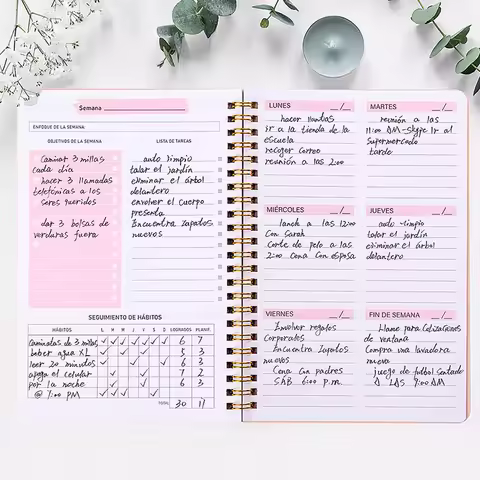 Semana
ENFOQUE DE LA SEMANA:
OBJETIVOS DE LA SEMANA
caminar 3 millas
cada día
hacer 3 llamadas
telefónicas a los
seres queridos
dar 3 bolsas de
verduras fuera
LISTA DE TAREAS
auto limpio
talar el jardín
eliminar el árbol
delantero
envolver el cuerpo
presenta
Encuentra zapatos
nuevos
SEGUIMIENTO DE HÁBITOS
HÁBITOS L M M J V S D LOGRADOS PLANIF.
caminatas de 3 millas 6 7
beber agua XL 5 3
leer 20 minutos 6 3
apaga el celular 7 2
por la noche 6 3
@ 7:00 PM
TOTAL 30 11
LUNES __/__
hacer
ir a la tienda de la
escuela
recoger correo
reunión a las 2:00
MARTES __/__
reunión a las
11:00 AM-skype Ir al
supermercado
tarde
MIÉRCOLES __/__
lanch a las 12:00
Con Sarah
Corte de pelo a las
2:00 Cena Con esposa
JUEVES __/__
auto limpio
talar el jardín
eliminar el árbol
delantero
VIERNES __/__
Envolver regalos
Corporates
Encuentra Zapatos
nuevos
Cena Con padres
6:00 p.m.
FIN DE SEMANA __/__
Llame para Cotizaciones
de ventana
Compra una lavadora
nueva
juego de futbol sentado
A LAS 9:00 AM